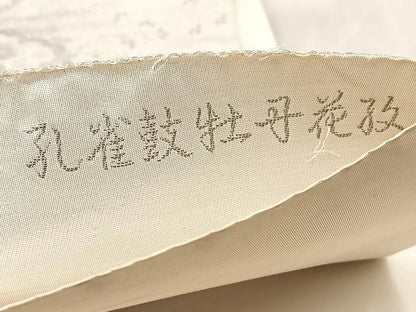 孔雀鼓牡丹花紋